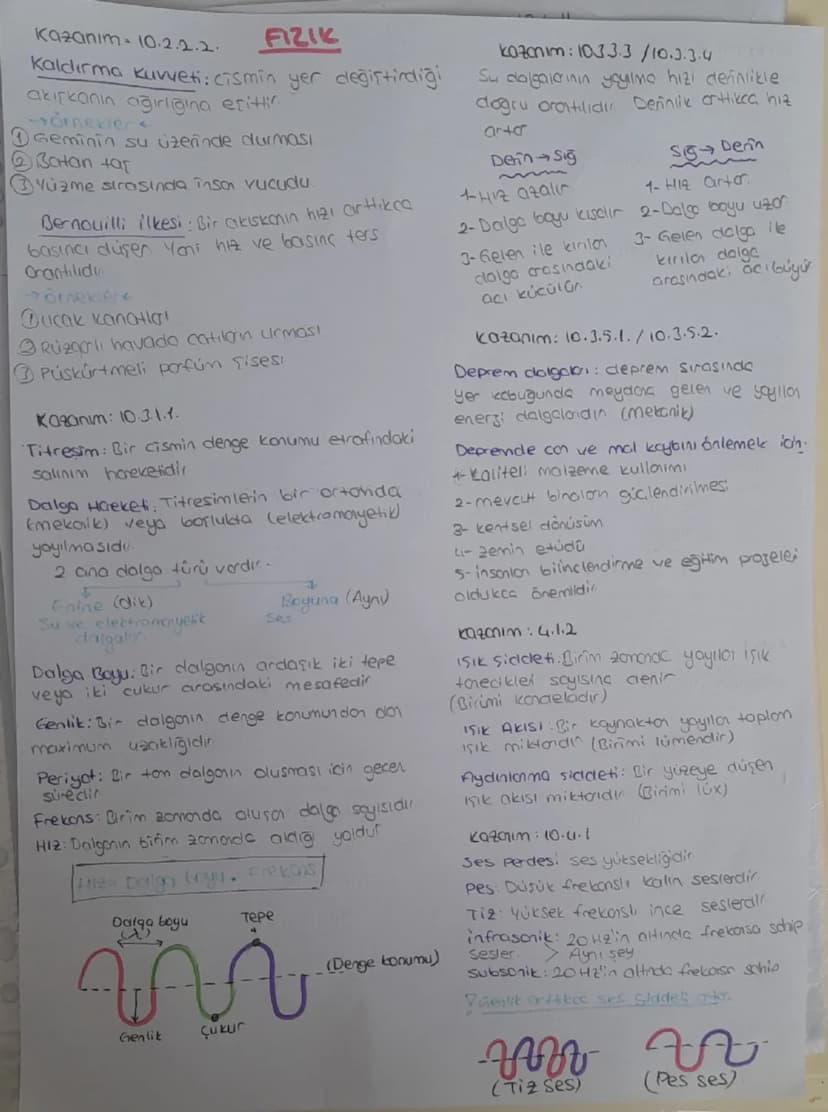 Kazanım = 10.2.2.2.
FIZIK
Kaldırma kuvveti: cismin yer değiştirdiği
akışkanın ağırlığına eşittir.
→örnekler←
① Geminin su üzerinde durması
② Batan taş
③ Yüzme sırasında insan vucudu
Bernouilli ilkesi: Bir akıskanın hızı arttıkca
basıncı düşer yani hız ve basınç ters
orantılıdır
→örnekler←
① Ucak kanatları
② Rüzgarlı havada catıların ucması
③ Püskürtmeli parfüm şişesi
Kazanım: 10.3.1.1.
Titreşim: Bir cismin denge konumu etrafındaki
salınım hareketidir
Dalga Hareketi: Titresimlerin bir ortamda
(mekanik) veya boşlukta (elektromanyetik)
yayılmasıdır.
2 ana dalga türü vardır.
Enine (dik)
Boyuna (Aynı)
Su ve elektromanyetik
dalgalar
Ses
Dalga Boyu: Bir dalganın ardaşık iki tepe
veya iki çukur arasındaki mesafedir
Genlik: Bir dalganın denge konumundan olan
maximum uzaklığıdır
Periyot: Bir tam dalganın olusması icin gecen
süredir
Frekans: Birim zamanda oluşan dalga sayısıdır
Hız: Dalganın birim zamanda aldığı yoldur
Hız= Dalga boyu . Frekans
Dalga boyu
(λ)
Tepe
(Denge konumu)
Genlik
Çukur
kazanım: 10.3.3.3 / 10.3.3.4
Su dalgalarının yayılma hızı derinlikle
doğru orantılıdır. Derinlik arttıkca hız
artar
Derin → Sığ
1- Hız azalır
2- Dalga boyu kısalır
3- Gelen ile kırılan
dalga arasındaki
acı kücülür.
Sığ → Derin
1- Hız artar.
2- Dalga boyu uzar
3- Gelen dalga ile
kırılan dalga
arasındaki acı büyür
kazanım: 10.3.5.1. / 10.3.5.2.
Deprem dalgaları: deprem sırasında
yer kabuğunda meydana gelen ve yayılan
enerji dalgalarıdır (mekanik)
Depremde can ve mal kaybını önlemek için.
1- Kaliteli malzeme kullanımı
2- mevcut binaların güclendirilmesi
3- kentsel dönüsüm
4- zemin etüdü
5- insanları bilinclendirme ve eğitim projeleri
oldukca önemlidir
kazanım: 4.1.2
ışık şiddeti: Birim zamanda yayılan ışık
tanecikleri sayısına denir
(Birimi kandeladır)
ışık Akısı: Bir kaynaktan yayılan toplam
ışık miktarıdır (Birimi lümendir)
Aydınlanma siddeti: Bir yüzeye düşen
ışık akısı miktarıdır (Birimi lüx)
kazanım: 10.4.1
Ses perdesi ses yüksekliğidir
Pes: Düşük frekanslı kalın seslerdir
Tiz: Yüksek frekanslı ince seslerdir
infrasonik: 20 Hz'in altında frekansa sahip
sesler.
> Aynı şey
Subsonik: 20 Hz'in altında frekansa sahip
Genlik arttıkca ses şiddeti artar.
(Tiz ses)
(Pes ses)